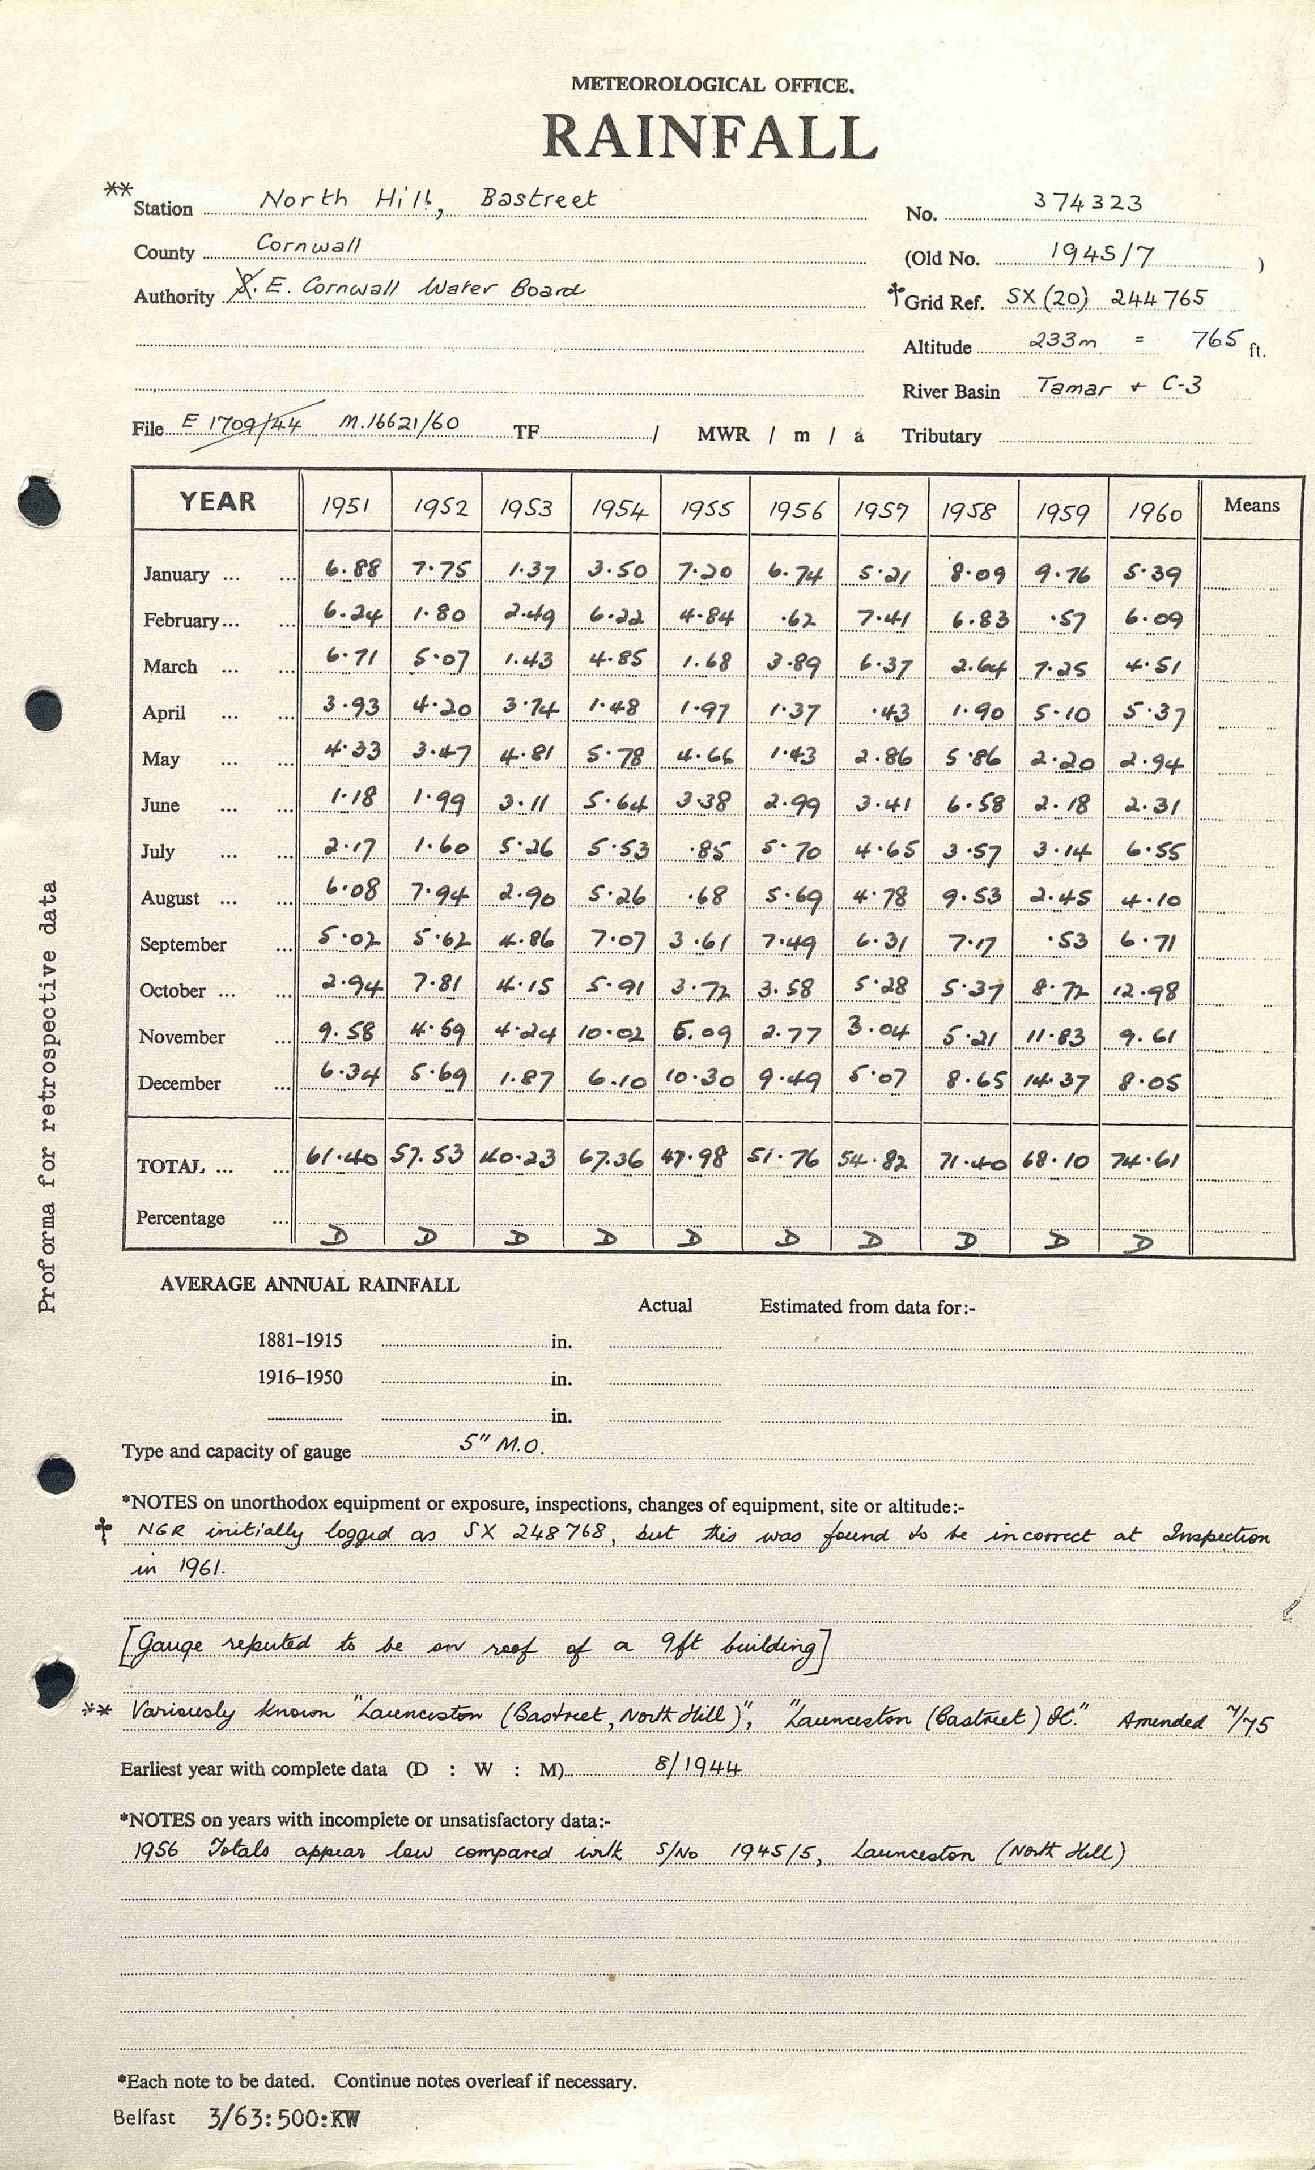 METEOROLOGICAL OFFICE.
RAINFALL
** Station North Hill, Bastreet No. 374323
County Cornwall (Old No. 1945/7 )
Authority S. E. Cornwall Water Board †Grid Ref. SX (20) 244765
Altitude 233m = 765 ft.
River Basin Tamar + C-3
File E 1709/44 M.16621/60 TF / MWR / m / a Tributary
YEAR 1951 1952 1953 1954 1955 1956 1957 1958 1959 1960 Means
January ... ... 6.88 7.75 1.37 3.50 7.20 6.74 5.21 8.09 9.76 5.39
February... ... 6.24 1.80 2.49 6.22 4.84 .62 7.41 6.83 .57 6.09
March ... ... 6.71 5.07 1.43 4.85 1.68 3.89 6.37 2.64 7.25 4.51
April ... ... 3.93 4.20 3.74 1.48 1.97 1.37 .43 1.90 5.10 5.37
May ... ... 4.33 3.47 4.81 5.78 4.66 1.43 2.86 5.86 2.20 2.94
June ... ... 1.18 1.99 3.11 5.64 3.38 2.99 3.41 6.58 2.18 2.31
July ... ... 2.17 1.60 5.26 5.53 .85 5.70 4.65 3.57 3.14 6.55
August ... ... 6.08 7.94 2.90 5.26 .68 5.69 4.78 9.53 2.45 4.10
September ... 5.02 5.62 4.86 7.07 3.61 7.49 6.31 7.17 .53 6.71
October ... ... 2.94 7.81 4.15 5.91 3.72 3.58 5.28 5.37 8.72 12.98
November ... 9.58 4.59 4.24 10.02 5.09 2.77 3.04 5.21 11.83 9.61
December ... 6.34 5.69 1.87 6.10 10.30 9.49 5.07 8.65 14.37 8.05
TOTAL ... ... 61.40 57.53 40.23 67.36 47.98 51.76 54.82 71.40 68.10 74.61
Percentage ... D D D D D D D D D D
Proforma for retrospective data
AVERAGE ANNUAL RAINFALL
Actual Estimated from data for:-
1881–1915 in.
1916–1950 in.
in.
Type and capacity of gauge 5" M.O.
*NOTES on unorthodox equipment or exposure, inspections, changes of equipment, site or altitude:-
† NGR initially logged as SX 248768, but this was found to be incorrect at Inspection
in 1961.
[Gauge reputed to be on roof of a 9ft building]
** Variously known "Launceston (Bastreet, North Hill)", "Launceston (Bastreet) &c." Amended 7/75
Earliest year with complete data (D : W : M) 8/1944
*NOTES on years with incomplete or unsatisfactory data:-
1956 Totals appear low compared with S/No 1945/5, Launceston (North Hill)
*Each note to be dated. Continue notes overleaf if necessary.
Belfast 3/63:500:KW